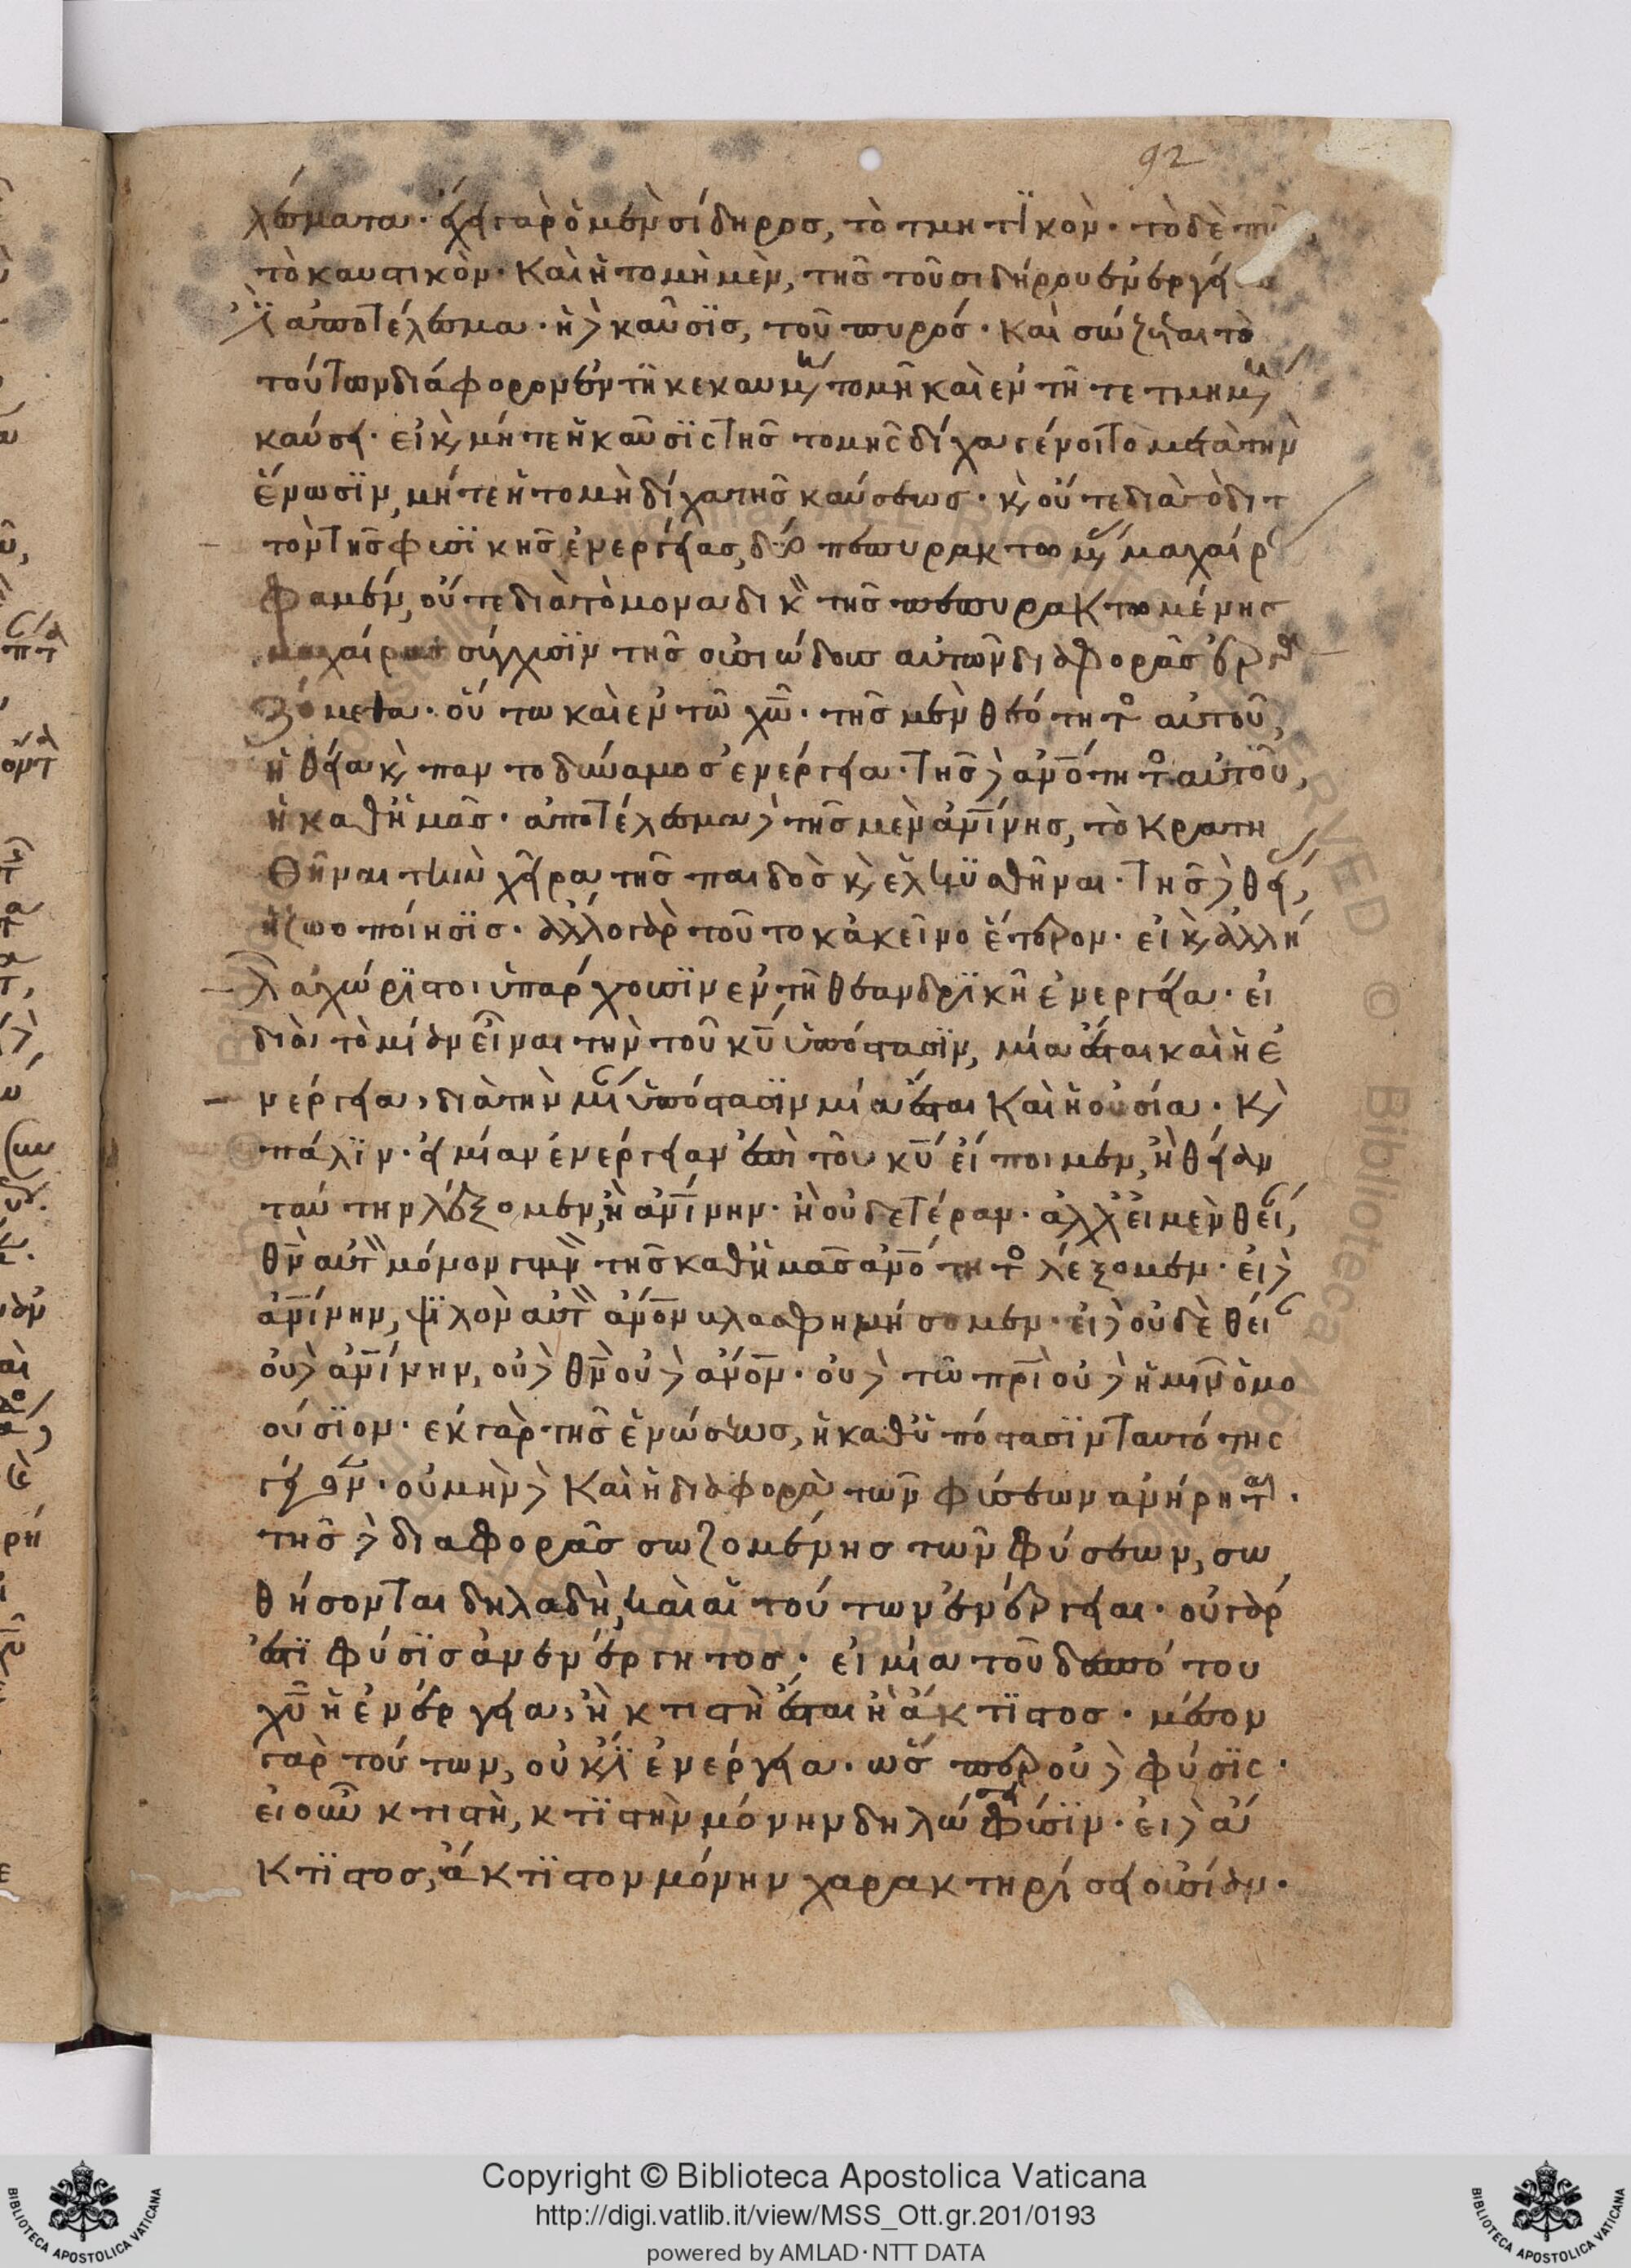 92
λέσματα· ἔχει γὰρ ὁ μὲν σίδηρος, τὸ τμητϊκὸν· τὸ δὲ πῦ
τὸ καυστικὸν· καὶ ἡ τομὴ μὲν, τῆς τοῦ σιδήρου ἐνεργεί
ἐστὶ ἀποτέλεσμα· ἡ δὲ καῦσϊς, τοῦ πυρός· καὶ σώζεται τὸ
τούτων διάφορον ἐν τῆ κεκαυμένη τομῆ καὶ ἐν τῆ τετμημένη
καύσει· εἰ καὶ μήτε ἡ καῦσϊς τῆς τομῆς δίχα γένοιτο μετὰ τὴν
ἕνωσϊν, μήτε ἡ τομὴ δίχα τῆς καύσεως· καὶ οὔτε διὰ τὸ διτ
τὸν τῆς φυσϊκῆς ἐνεργείας, δύο πεπυρακτωμένας μαχαίρας
φαμέν, οὔτε διὰ τὸ μοναδικὸν τῆς πεπυρακτωμένης
μαχαίρας σύγχυσϊν τῆς οὐσιώδους αὐτῶν διαφορᾶς ἐργα
ζόμεθα· οὕτω καὶ ἐν τῶ χῶ· τῆς μὲν θεότητος αὐτοῦ,
ἡ θεία καὶ παντοδύναμος ἐνέργεια· τῆς δὲ ἀνότητος αὐτοῦ,
ἡ καθ' ἡμᾶς· ἀποτέλεσμα δὲ τῆς μὲν ἀνίνης, τὸ κρατη
θῆναι τὴν χεῖρα τῆς παιδὸς καὶ ἑλκυσθῆναι· τῆς δὲ θείας,
ἡ ζωοποίησϊς· ἄλλο γὰρ τοῦτο κἀκεῖνο ἕτερον· εἰ καὶ ἀλλή
λα χώρϊστοι ὑπάρχουσϊν ἐν τῆ θεανδρϊκῆ ἐνεργεία· εἰ
διὰ τὸ μίαν εἶναι τὴν τοῦ κυ ὑπόστασϊν, μία ἔσται καὶ ἡ ἐ
νέργεια, διὰ τὴν μίαν ὑπόστασϊν μία ἔσται καὶ ἡ οὐσία· καὶ
πάλϊν· εἰ μίαν ἐνέργειαν ἐπὶ τοῦ κυ εἴποιμεν, ἢ θείαν
ταύτην λέξομεν, ἢ ἀνίνην· ἢ οὐδετέραν· ἀλλ' εἰ μὲν θείαν,
θν αὐτὸν μόνον γυμνὸν τῆς καθ' ἡμᾶς ἀνότητος λέξομεν· εἰ δὲ
ἀνίνην, ψϊλὸν αὐτὸν ἄνον βλασφημήσομεν· εἰ δὲ οὐδὲ θείαν
οὐδὲ ἀνίνην, οὐδὲ θν οὐδὲ ἄνον· οὐδὲ τῶ πρι οὐδὲ ἡμῖν ὁμο
ούσϊον· ἐκ γὰρ τῆς ἑνώσεως, ἡ καθ' ὑπόστασϊν ταυτότης
γέγονεν· οὐ μὴν δὲ καὶ ἡ διαφορὰ τῶν φύσεων ἀνήρηται·
τῆς δὲ διαφορᾶς σωζομένης τῶν φύσεων, σω
θήσονται δηλαδὴ, καὶ αἱ τούτων ἐνέργειαι· οὐ γὰρ
ἐστϊ φύσϊς ἀνενέργητος· εἰ μία τοῦ δεσπότου
χυ ἡ ἐνέργεια, ἢ κτιστὴ ἔσται ἢ ἄκτϊστος· μέσον
γὰρ τούτων, οὐκ ἔστϊ ἐνέργεια· ὥσπερ οὐδὲ φύσϊς·
εἰ οὖν κτιστὴ, κτϊστὴν μόνην δηλώσει φύσϊν· εἰ δὲ ἄ
κτϊστος, ἄκτϊστον μόνην χαρακτηρίσει οὐσίαν·
Copyright © Biblioteca Apostolica Vaticana
http://digi.vatlib.it/view/MSS_Ott.gr.201/0193
powered by AMLAD·NTT DATA